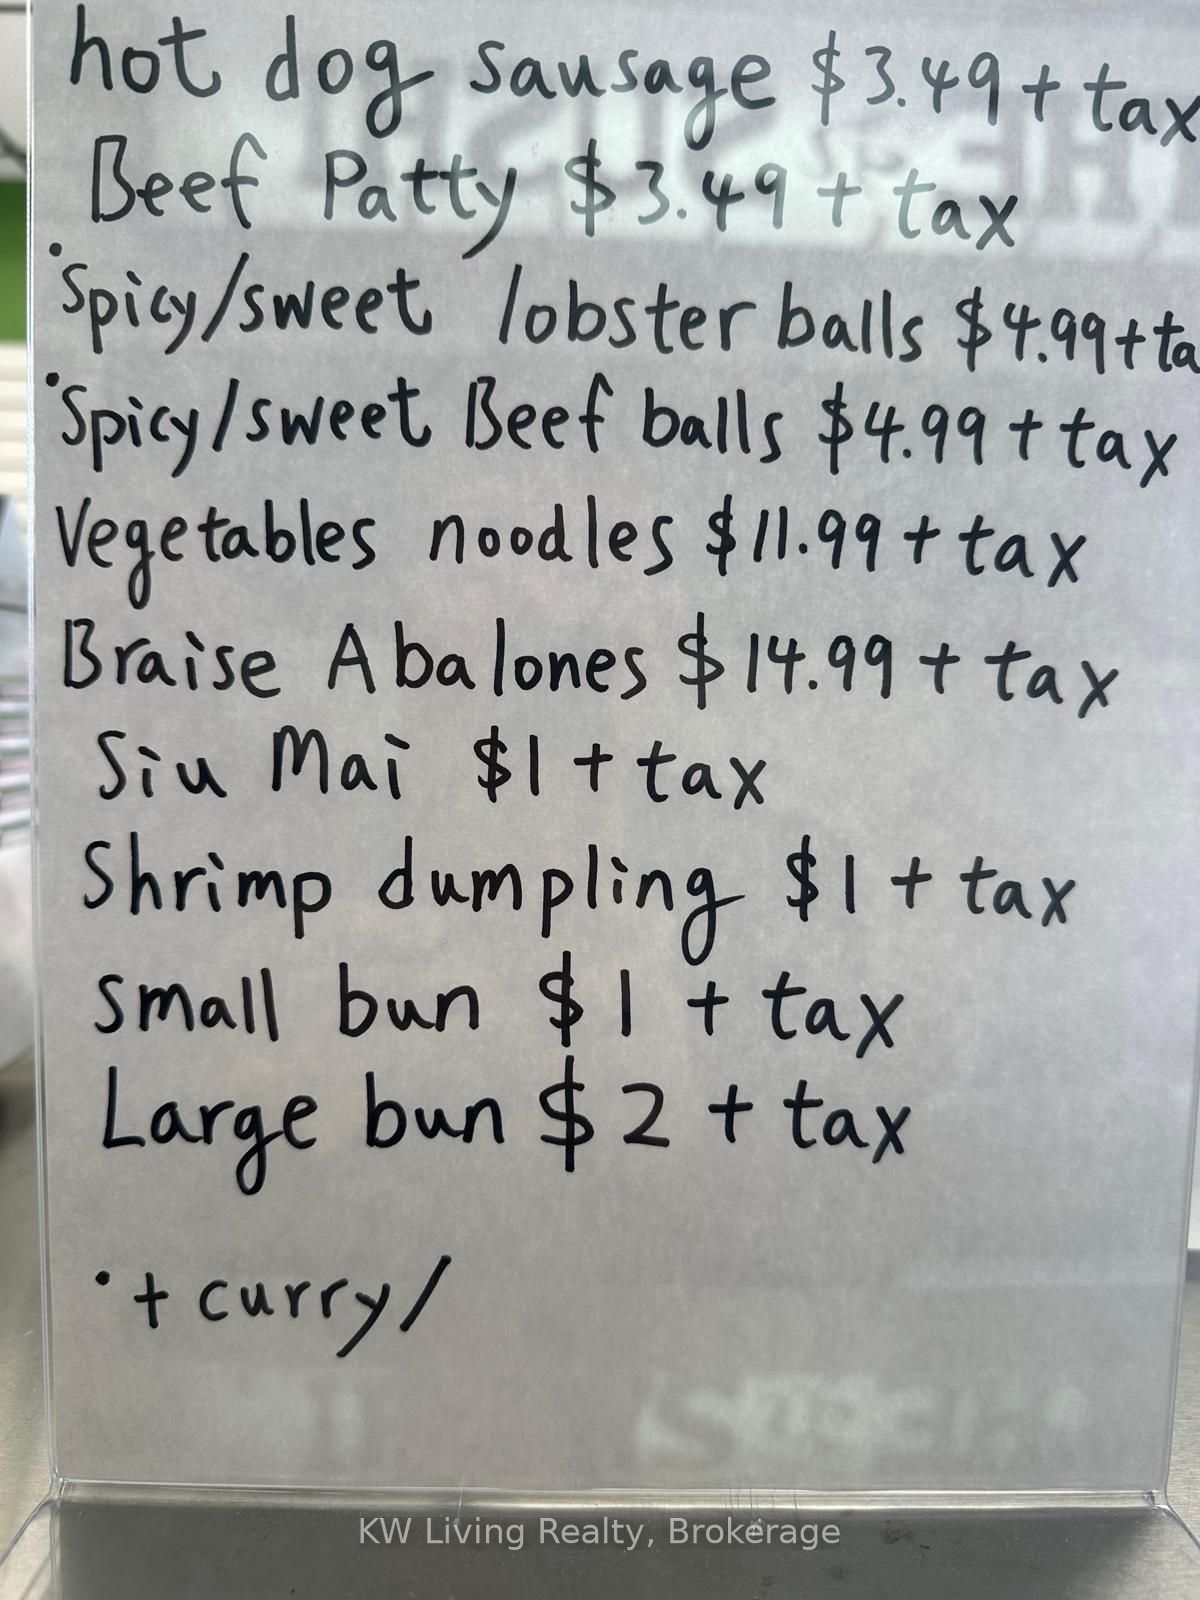 hot dog sausage $3.49 + tax
Beef Patty $3.49 + tax
·Spicy/sweet lobster balls $4.99+ta
·Spicy/sweet Beef balls $4.99 + tax
Vegetables noodles $11.99 + tax
Braise Abalones $14.99 + tax
Siu Mai $1 + tax
Shrimp dumpling $1 + tax
small bun $1 + tax
Large bun $2 + tax
·+ curry/
KW Living Realty, Brokerage